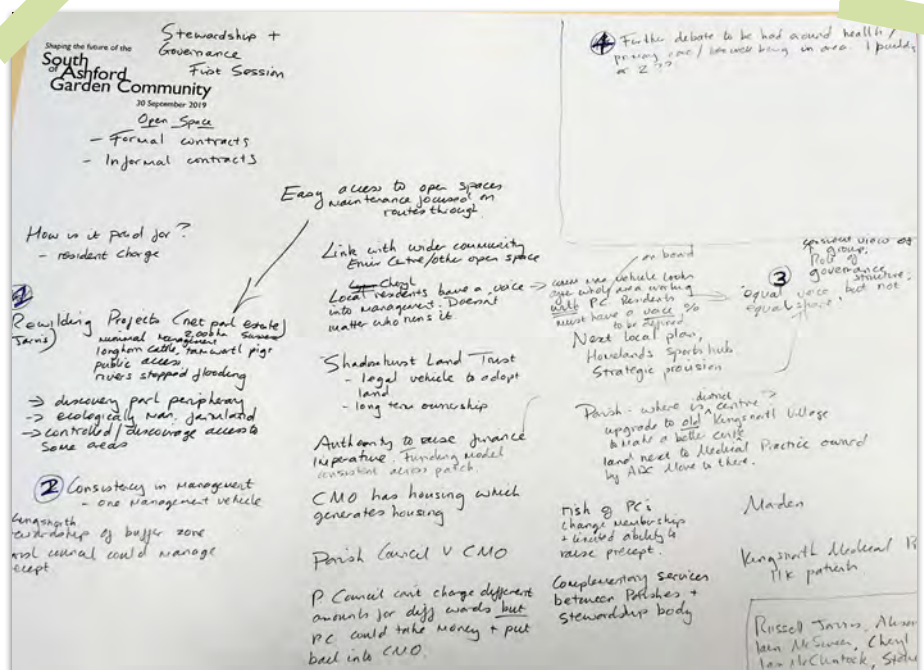 Shaping the future of the
South
of Ashford
Garden Community
30 September 2019
Stewardship +
Governance
First Session
Open Space
- Formal contracts
- Informal contracts
How is it paid for?
- resident charge
Easy access to open spaces
Maintenance focused on
routes through
1
Rewilding Projects
Jarvis)
minimal management
2,000ha
longhorn cattle, tamworth pigs
public access
rivers stopped flooding
→ discovery park periphery
→ ecologically man. farmland
→ controlled/discourage access to
some areas
2 Consistency in Management
- one management vehicle
buffer zone
council could manage
Link with wider community
Centre/other open space
Cheryl
Local residents have a voice →
into management. Doesnt
matter who runs it
Shadoxhurst Land Trust
- legal vehicle to adopt
land
- long term ownership
Authority to raise finance
imperative. Funding model
consistent across patch.
CMO has housing which
generates housing
Parish Council V CMO
P Council cant charge different
amounts for diff wards but
PC could take money + put
back into CMO.
4 Further debate to be had around health/
primary care/ being in area. 1
or 2 ??
on board
vehicle looks
whole area working
with PC. Residents
must have a voice %
to be defined
Next local plan,
sports hub
Strategic provision
3
view of
group.
Role of
governance
structure.
equal voice but not
equal space.
Parish - where is district centre →
upgrade to old Kingsnorth Village
to make a better centre
land next to Medical Practice owned
by ABC move to there.
risk of PCs
change membership
+ limited ability to
raise precept.
Complementary services
between Parishes +
Stewardship body
Kingsnorth Medical
11k patients
Russell Jarvis,
Iain McSween, Cheryl
Ian McClintock,